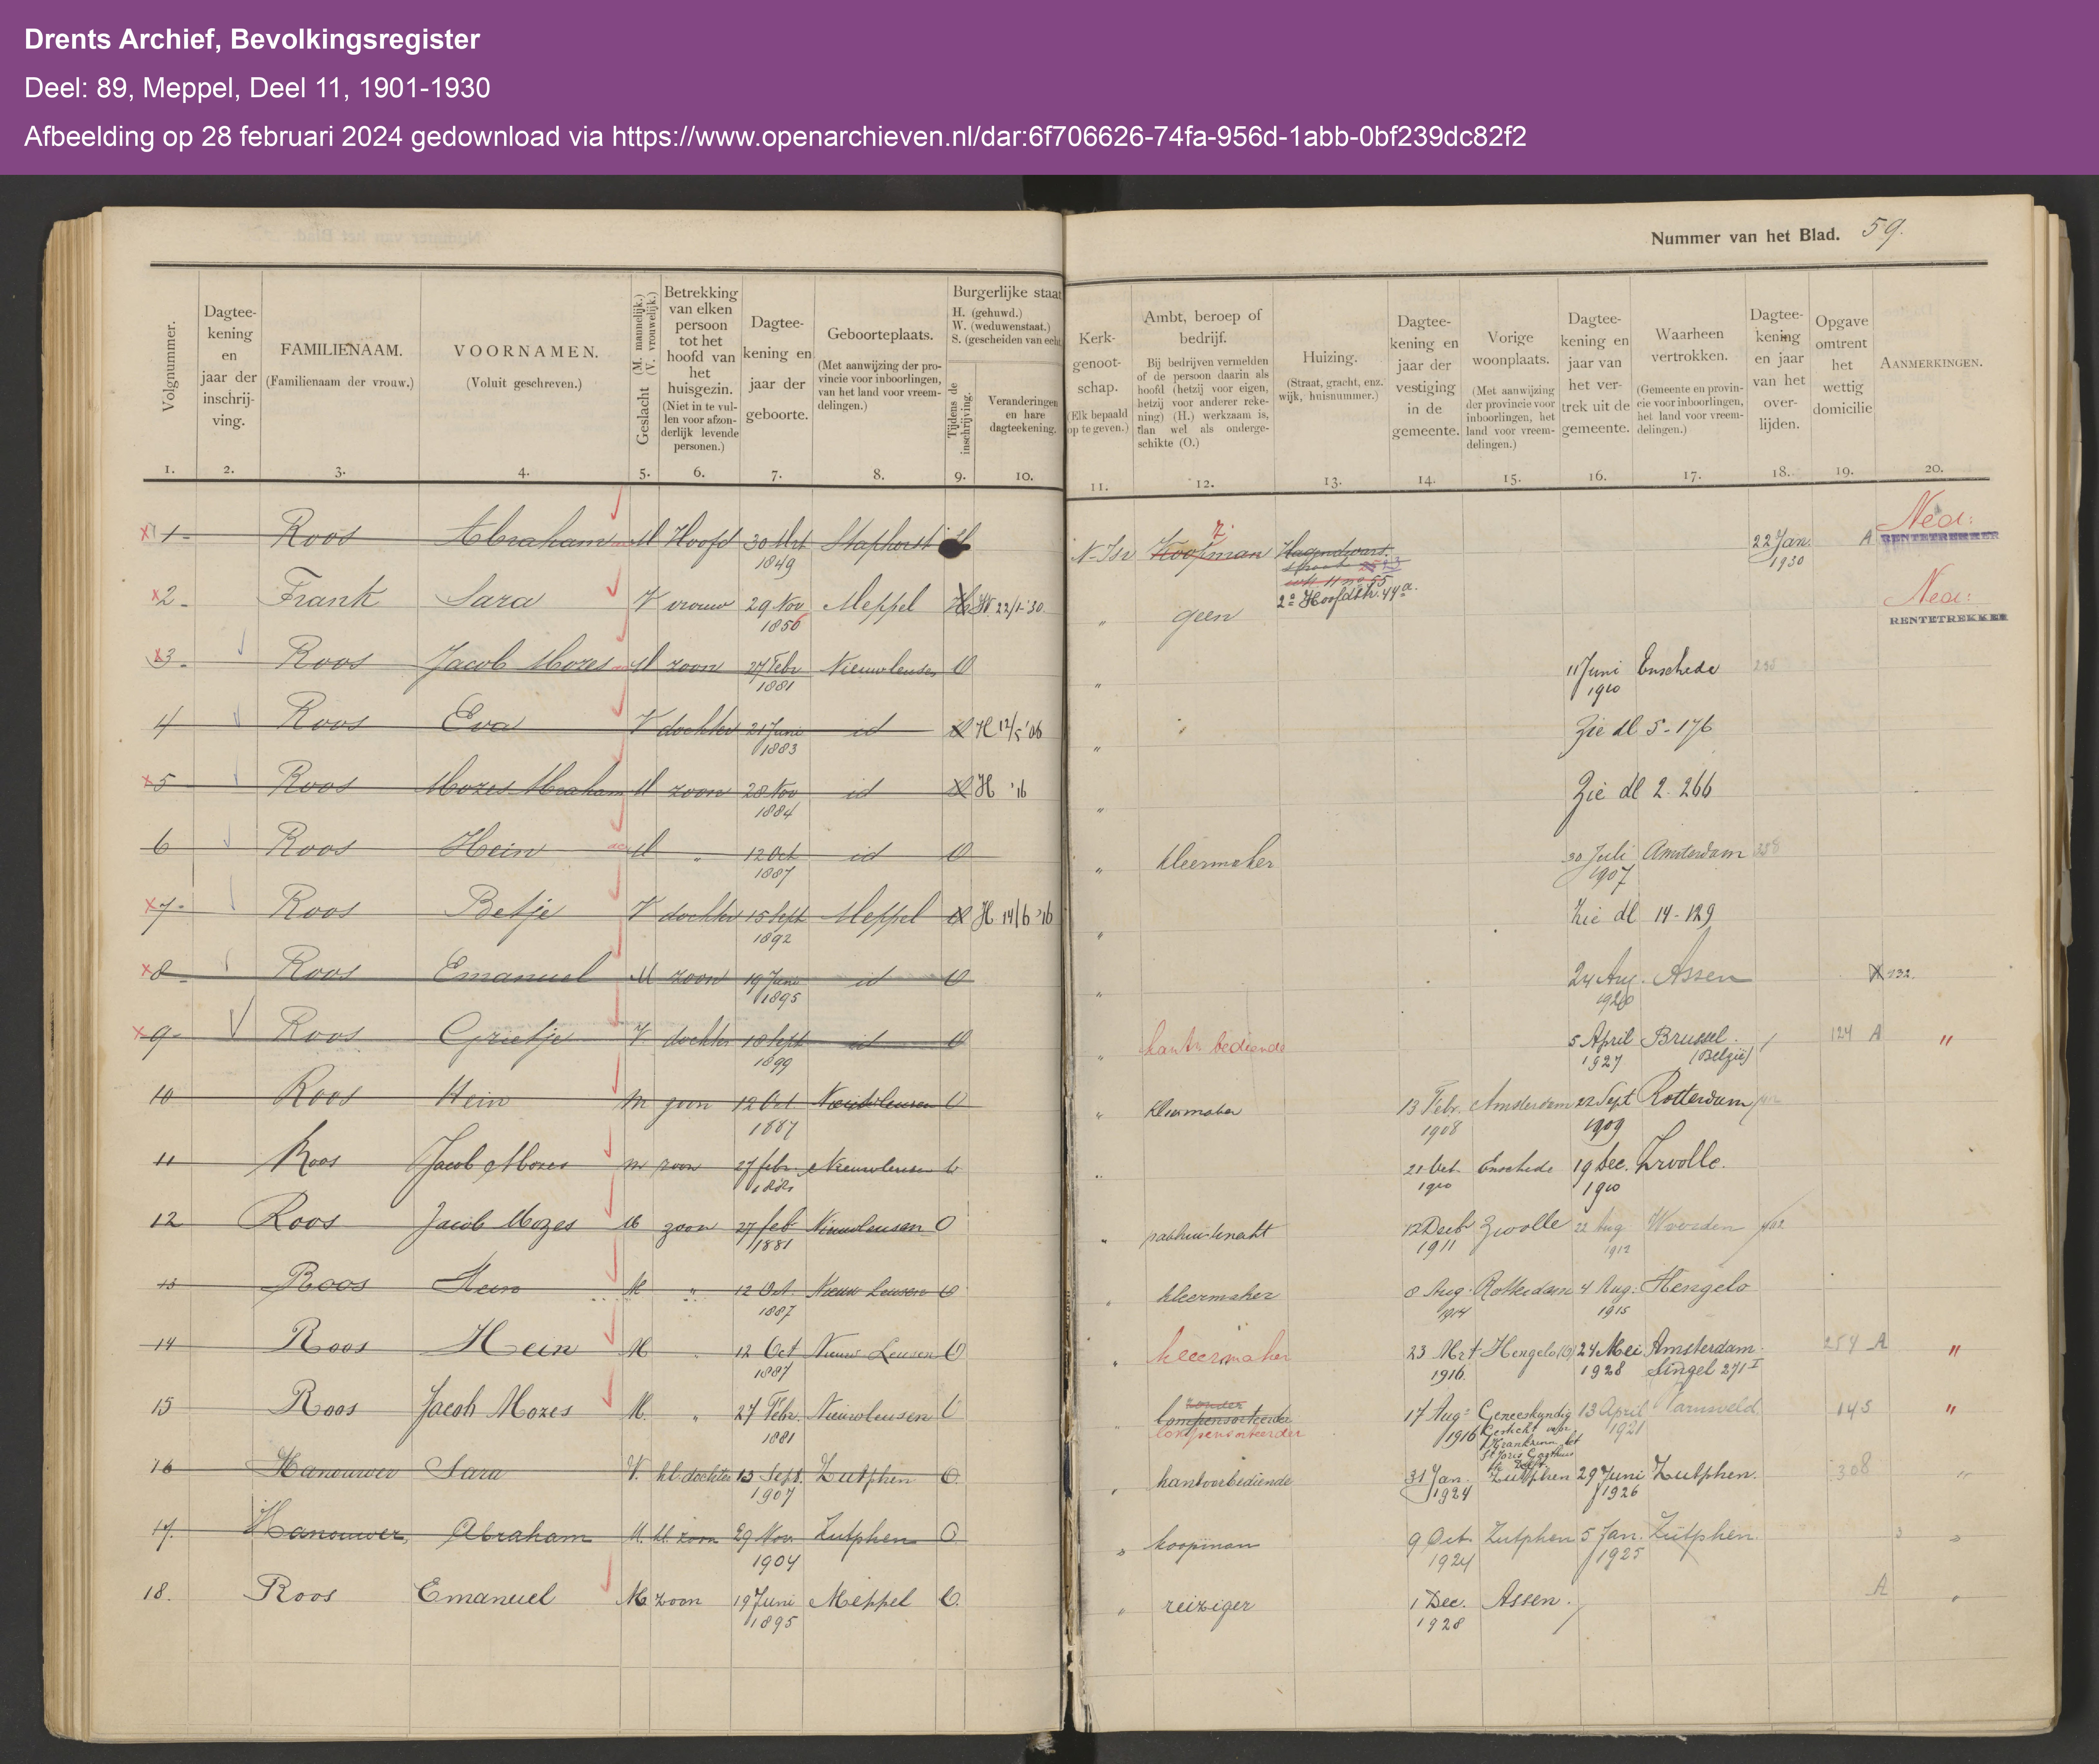 Drents Archief, Bevolkingsregister
Deel: 89, Meppel, Deel 11, 1901-1930
Afbeelding op 28 februari 2024 gedownload via https://www.openarchieven.nl/dar:6f706626-74fa-956d-1abb-0bf239dc82f2
Nummer van het Blad. 59.
Volgnummer.
Dagtee-
kening
en
jaar der
inschrij-
ving.
FAMILIENAAM.
(Familienaam der vrouw.)
VOORNAMEN.
(Voluit geschreven.)
Geslacht (M. mannelijk.)
(V. vrouwelijk.)
Betrekking
van elken
persoon
tot het
hoofd van
het
huisgezin.
(Niet in te vul-
len voor afzon-
derlijk levende
personen.)
Dagtee-
kening en
jaar der
geboorte.
Geboorteplaats.
(Met aanwijzing der pro-
vincie voor inboorlingen,
van het land voor vreem-
delingen.)
Burgerlijke staat
H. (gehuwd.)
W. (weduwenstaat.)
S. (gescheiden van echt
Tijdens de
inschrijving.
Veranderingen
en hare
dagteekening.
Kerk-
genoot-
schap.
(Elk bepaald
op te geven.)
Ambt, beroep of
bedrijf.
Bij bedrijven vermelden
of de persoon daarin als
hoofd (hetzij voor eigen,
hetzij voor anderer reke-
ning) (H.) werkzaam is,
dan wel als onderge-
schikte (O.)
Huizing.
(Straat, gracht, enz.
wijk, huisnummer.)
Dagtee-
kening en
jaar der
vestiging
in de
gemeente.
Vorige
woonplaats.
(Met aanwijzing
der provincie voor
inboorlingen, het
land voor vreem-
delingen.)
Dagtee-
kening en
jaar van
het ver-
trek uit de
gemeente.
Waarheen
vertrokken.
(Gemeente en provin-
cie voor inboorlingen,
het land voor vreem-
delingen.)
Dagtee-
kening
en jaar
van het
over-
lijden.
Opgave
omtrent
het
wettig
domicilie
AANMERKINGEN.
1. 2. 3. 4. 5. 6. 7. 8. 9. 10. 11. 12. 13. 14. 15. 16. 17. 18. 19. 20.
1 Roos Abraham M Hoofd 30 Mrt 1849 Staphorst H N-Isr Koopman 22 Jan. 1930 A Ned: RENTETREKKER
2 Frank Sara V vrouw 29 Nov 1856 Meppel H W 22/1-'30 " geen 2e Hoofdstr. 44a. Ned: RENTETREKKER
3 Roos Jacob Mozes M zoon 27 Febr 1881 Nieuwleusen O " 11 Juni 1910 Enschede
4 Roos Eva V dochter 21 Juni 1883 id O H 12/5 '06 " Zie dl 5-176
5 Roos Mozes Abraham M zoon 28 Nov 1884 id O H '16 " Zie dl 2. 266
6 Roos Hein M " 12 Oct 1887 id O " kleermaker 30 Juli 1907 Amsterdam 338
7 Roos Betje V dochter 15 Sept 1892 Meppel O H 14/6 '16 " Zie dl 14-129
8 Roos Emanuel M zoon 19 Juni 1895 id O " 24 Aug. 1920 Assen A 132
9 Roos Grietje V dochter 18 Sept 1899 id O " kantr. bediende 5 April 1927 Brussel. (België) 124 A "
10 Roos Hein M zoon 12 Oct 1887 Nieuwleusen O " kleermaker 13 Febr. 1908 Amsterdam 22 Sept 1909 Rotterdam
11 Roos Jacob Mozes M zoon 27 febr. 1881 Nieuwleusen O " 21 Oct. 1910 Enschede 19 Dec. 1910 Zwolle.
12 Roos Jacob Mozes M zoon 27 feb 1881 Nieuwleusen O " pakhuisknecht 12 Decbr 1911 Zwolle 22 Aug 1912 Woerden
13 Roos Hein M " 12 Oct. 1887 Nieuw Leusen O " kleermaker 8 Aug. 1914 Rotterdam 4 Aug. 1915 Hengelo
14 Roos Hein M " 12 Oct 1887 Nieuw Leusen O " kleermaker 23 Mrt 1916. Hengelo (O) 24 Mei 1928 Amsterdam. Singel 271 I 254 A "
15 Roos Jacob Mozes M. " 27 Febr. 1881 Nieuwleusen O " zonder lompensorteerder lompensorteerder 17 Aug: 1916 Geneeskundig Gesticht voor Krankzinn. St Joris Gasthuis te Delft. 13 April 1921 Warnsveld 145 "
16 Hanouwer Sara V. kl. dochter 13 Sept. 1907 Zutphen O. " kantoorbediende 31 Jan. 1924 Zutphen 29 Juni 1926 Zutphen. 308 "
17. Hanouwer, Abraham M. kl. zoon 29 Nov 1904 Zutphen O " koopman 9 Oct. 1924 Zutphen 5 Jan. 1925 Zutphen. "
18. Roos Emanuel M zoon 19 Juni 1895 Meppel O. " reiziger 1 Dec. 1928 Assen. A "